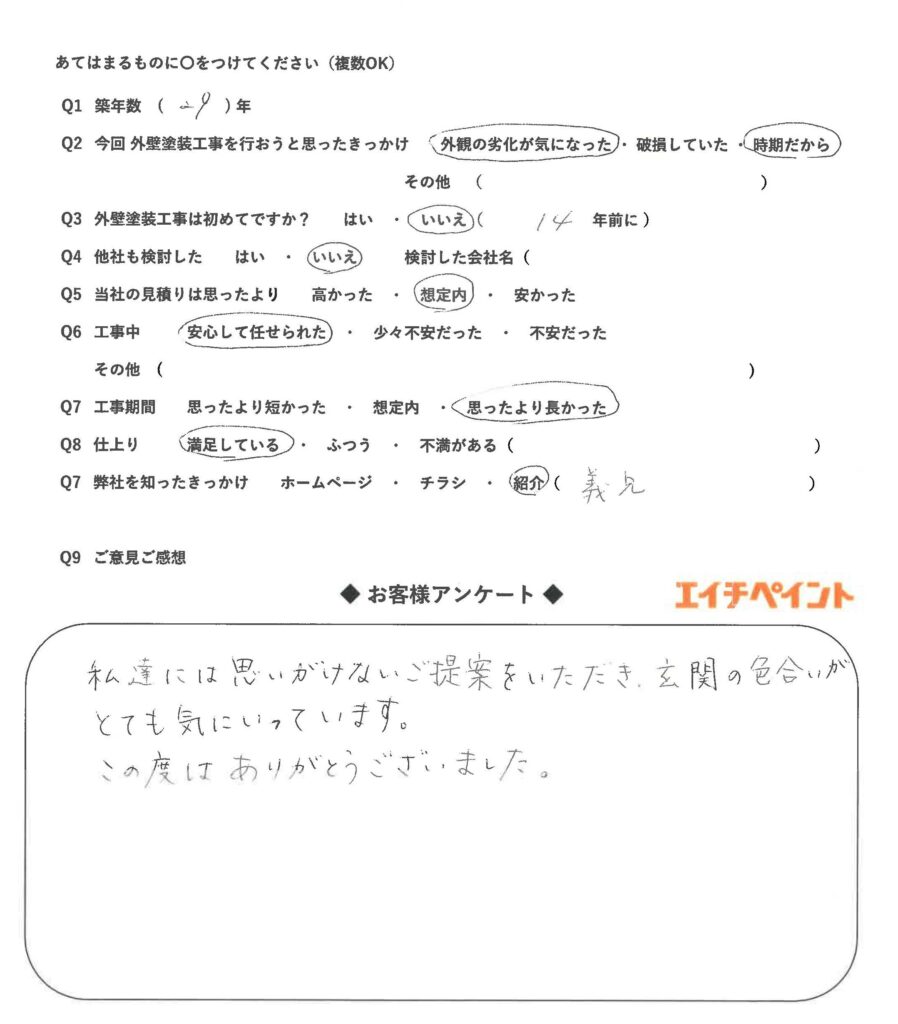 あてはまるものに〇をつけてください（複数OK）
Q1 築年数 （ 29 ）年
Q2 今回 外壁塗装工事を行おうと思ったきっかけ 外観の劣化が気になった・ 破損していた ・時期だから
その他 （ ）
Q3 外壁塗装工事は初めてですか？ はい ・ いいえ（ 14 年前に）
Q4 他社も検討した はい ・ いいえ 検討した会社名（
Q5 当社の見積りは思ったより 高かった ・ 想定内 ・ 安かった
Q6 工事中 安心して任せられた ・ 少々不安だった ・ 不安だった
その他 （ ）
Q7 工事期間 思ったより短かった ・ 想定内 ・ 思ったより長かった
Q8 仕上り 満足している ・ ふつう ・ 不満がある（ ）
Q7 弊社を知ったきっかけ ホームページ ・ チラシ ・ 紹介（ 義兄 ）
Q9 ご意見ご感想
◆ お客様アンケート ◆ エイチペイント
私達には思いがけないご提案をいただき、玄関の色合いが
とても気にいっています。
この度はありがとうございました。